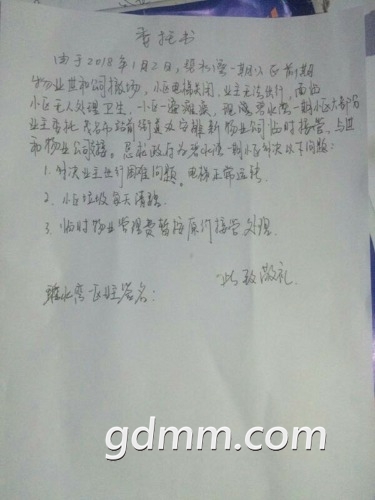 委托书
由于2018年1月2日,碧水湾一期小区前期
物业世和公司撤场,小区电梯关闭,业主无法出行,南面
小区无人处理卫生,小区一盘难矣,现碧水湾一期小区大部分
业主委托茂名市站前街道办与维新物业公司临时接管,与世
和物业公司交接。恳求政府为碧水湾一期小区解决以下问题:
1. 解决业主出行困难问题。电梯正常运转
2. 小区垃圾每天清理
3. 临时物业管理费暂按原价接管处理
此致敬礼
碧水湾一区业主签名:
gdmm.com